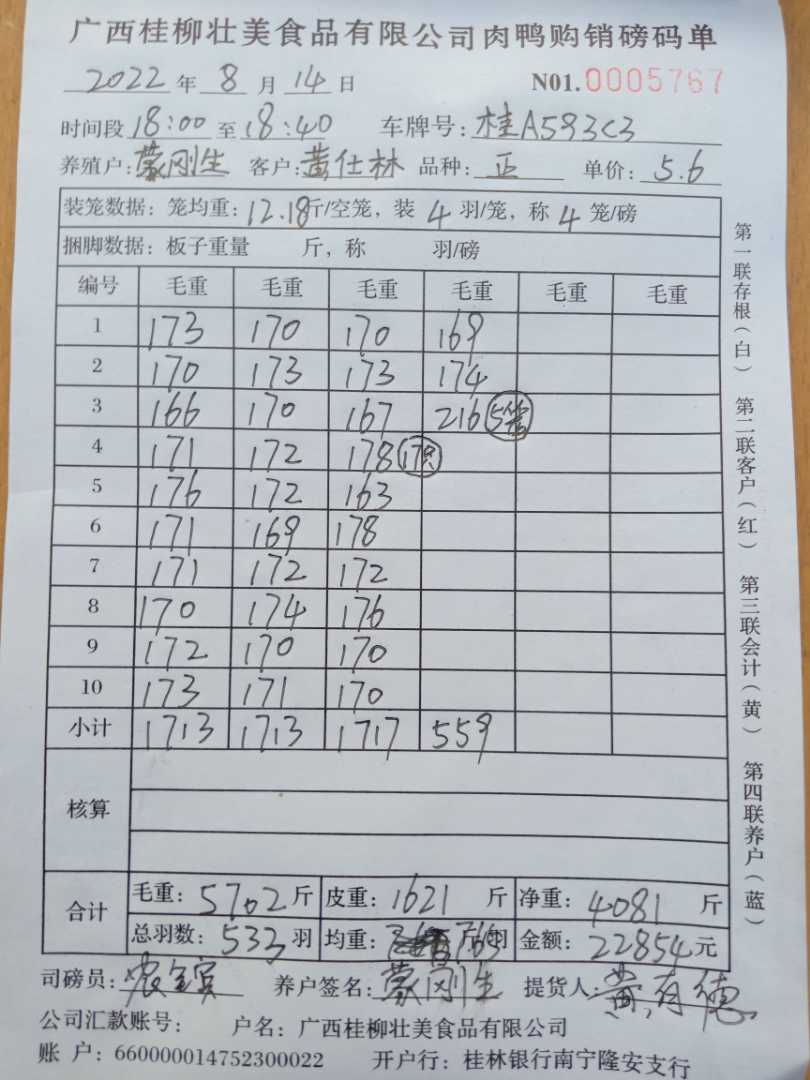 广西桂柳壮美食品有限公司肉鸭购销磅码单
2022 年 8 月 14 日 N01. 0005767
时间段 18:00 至 18:40 车牌号: 桂A593C3
养殖户: 蒙刚生 客户: 黄仕林 品种: 正 单价: 5.6
装笼数据: 笼均重: 12.18斤/空笼, 装 4 羽/笼, 称 4 笼/磅
捆脚数据: 板子重量 斤, 称 羽/磅
编号 毛重 毛重 毛重 毛重 毛重 毛重
1 173 170 170 169
2 170 173 173 174
3 166 170 167 216 5笼
4 171 172 178 17只
5 176 172 163
6 171 169 178
7 171 172 172
8 170 174 176
9 172 170 170
10 173 171 170
小计 1713 1713 1717 559
核算
合计
毛重: 5702 斤 皮重: 1621 斤 净重: 4081 斤
总羽数: 533 羽 均重: 7.65 羽 金额: 22854 元
司磅员: 养户签名: 蒙刚生 提货人: 黄有德
公司汇款账号: 户名: 广西桂柳壮美食品有限公司
账 户: 660000014752300022 开户行: 桂林银行南宁隆安支行
第一联存根(白) 第二联客户(红) 第三联会计(黄) 第四联养户(蓝)